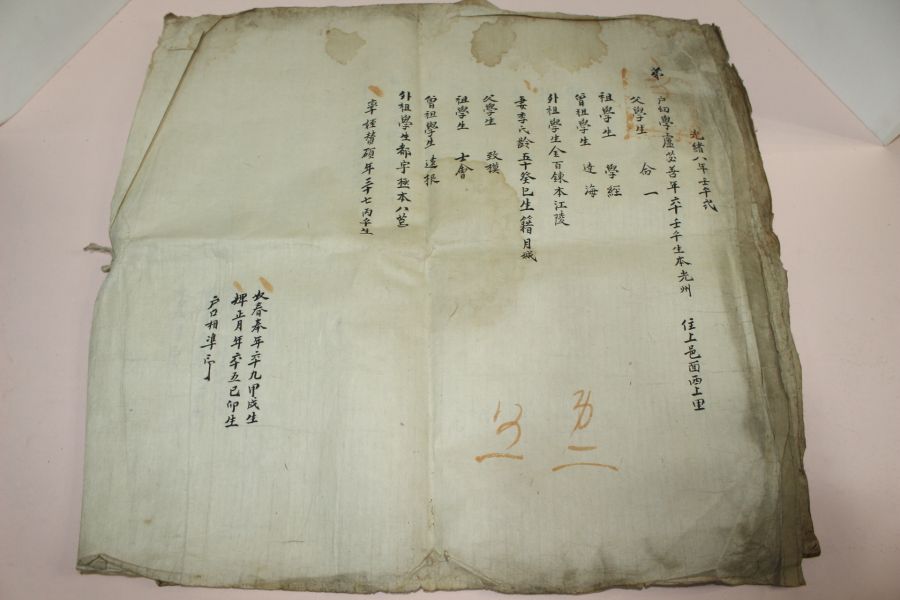 光緒八年壬午式
住上邑面西上里
第
戶幼學盧 善年六十壬午生本光州
父學生 命一
祖學生 學經
曾祖學生 達海
外祖學生金百鍊本江陵
妻李氏齡五十癸巳生籍月城
父學生 致模
祖學生 士會
曾祖學生 遠振
外祖學生都宇極本八莒
率姪贊碩年三十七丙午生
奴春奉年六十九甲戌生
婢正月年六十五己卯生
戶口相準印